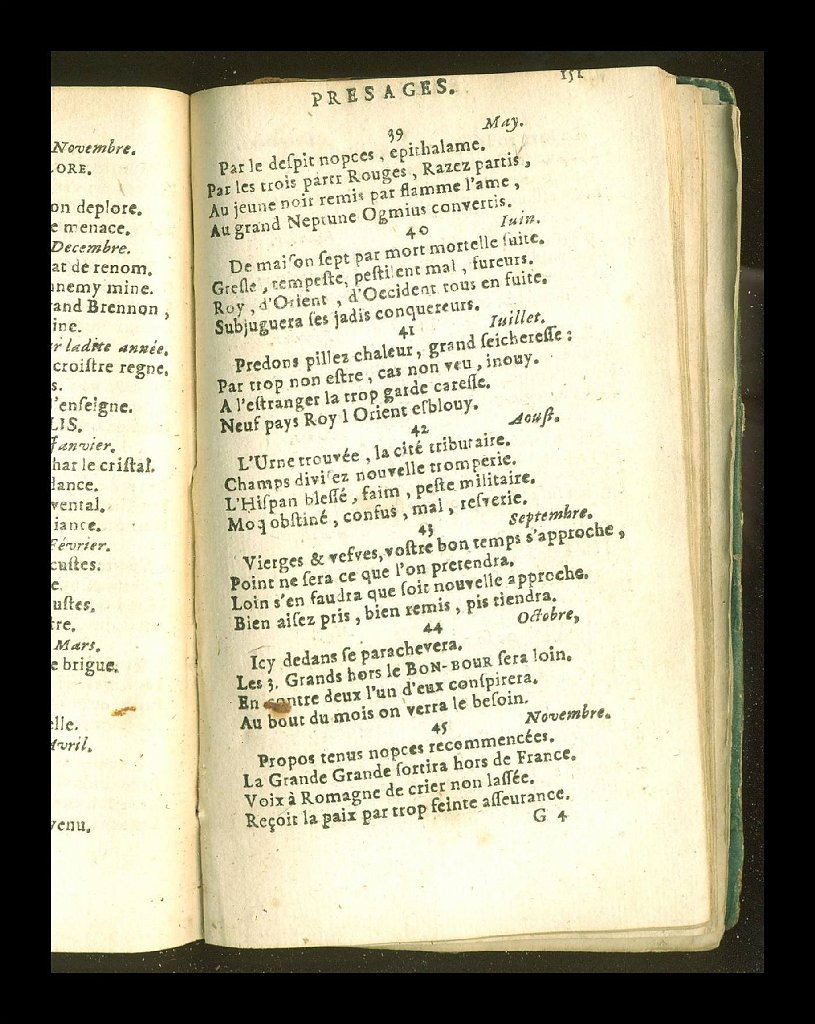 Novembre.
LORE.
on deplore.
e menace.
Decembre.
at de renom.
nnemy mine.
rand Brennon ,
ine.
r ladite année.
croiſtre regne.
s.
l'enſeigne.
LIS.
Janvier.
har le criſtal.
dance.
vental.
iance.
Février.
cuſtes.
e.
uſtes.
tre.
Mars.
e brigue.
elle.
Avril.
venu.
PRESAGES. 151
39 May.
Par le deſpit nopces , epithalame.
Par les trois partr Rouges , Razez partis ,
Au jeune noir remis par flamme l'ame ,
Au grand Neptune Ogmius convertis.
40 Iuin.
De maiſon ſept par mort mortelle ſuite.
Greſle , tempeſte, peſtilent mal , fureurs.
Roy , d'Orient , d'Occident tous en fuite.
Subjuguera ſes jadis conquereurs.
41 Iuillet.
Predons pillez chaleur, grand ſeichereſſe :
Par trop non eſtre , cas non veu , inouy.
A l'eſtranger la trop garde careſſe.
Neuf pays Roy l Orient eſblouy.
42 Aouſt.
L'Urne trouvée , la cité tributaire.
Champs diviſez nouvelle tromperie.
L'Hiſpan bleſſé , faim , peſte militaire.
Moq obſtiné , confus , mal , reſverie.
43 Septembre.
Vierges & vefves, voſtre bon temps s'approche ,
Point ne ſera ce que l'on pretendra.
Loin s'en faudra que ſoit nouvelle approche.
Bien aiſez pris , bien remis , pis tiendra.
44 Octobre,
Icy dedans ſe parachevera.
Les 3. Grands hors le BON-BOUR ſera loin.
En contre deux l'un d'eux conſpirera.
Au bout du mois on verra le beſoin.
45 Novembre.
Propos tenus nopces recommencées.
La Grande Grande ſortira hors de France.
Voix à Romagne de crier non laſſée.
Reçoit la paix par trop feinte aſſeurance.
G 4